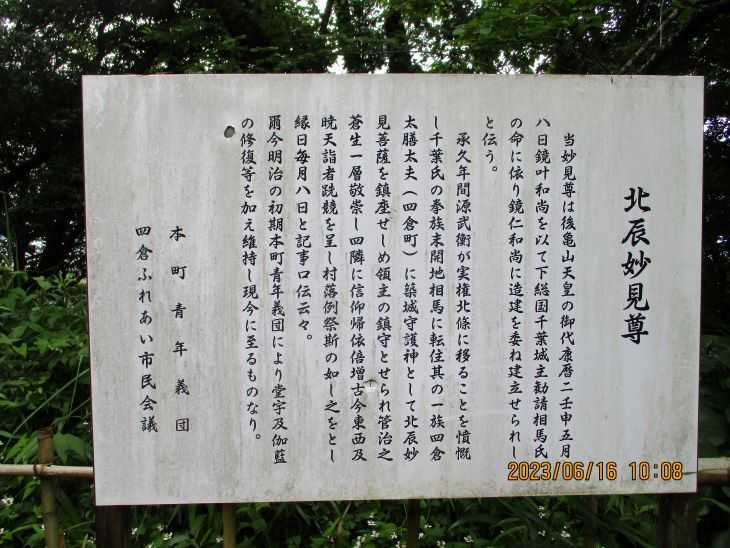 北辰妙見尊
当妙見尊は後亀山天皇の御代康暦二壬申五月
八日鏡叶和尚を以て下総国千葉城主勧請相馬氏
の命に依り鏡仁和尚に造建を委ね建立せられし
と伝う。
承久年間源武衡が実権北條に移ることを憤慨
し千葉氏の拳族末開地相馬に転住其の一族四倉
太膳太夫（四倉町）に築城守護神として北辰妙
見菩薩を鎮座せしめ領主の鎮守とせられ管治之
蒼生一層敬崇し四隣に信仰帰依倍増古今東西及
暁天詣者跣競を呈し村落例祭斯の如し之をとし
縁日毎月八日と記事口伝云々。
爾今明治の初期本町青年義団により堂宇及伽藍
の修復等を加え維持し現今に至るものなり。
本町青年義団
四倉ふれあい市民会議
2023/06/16 10:08